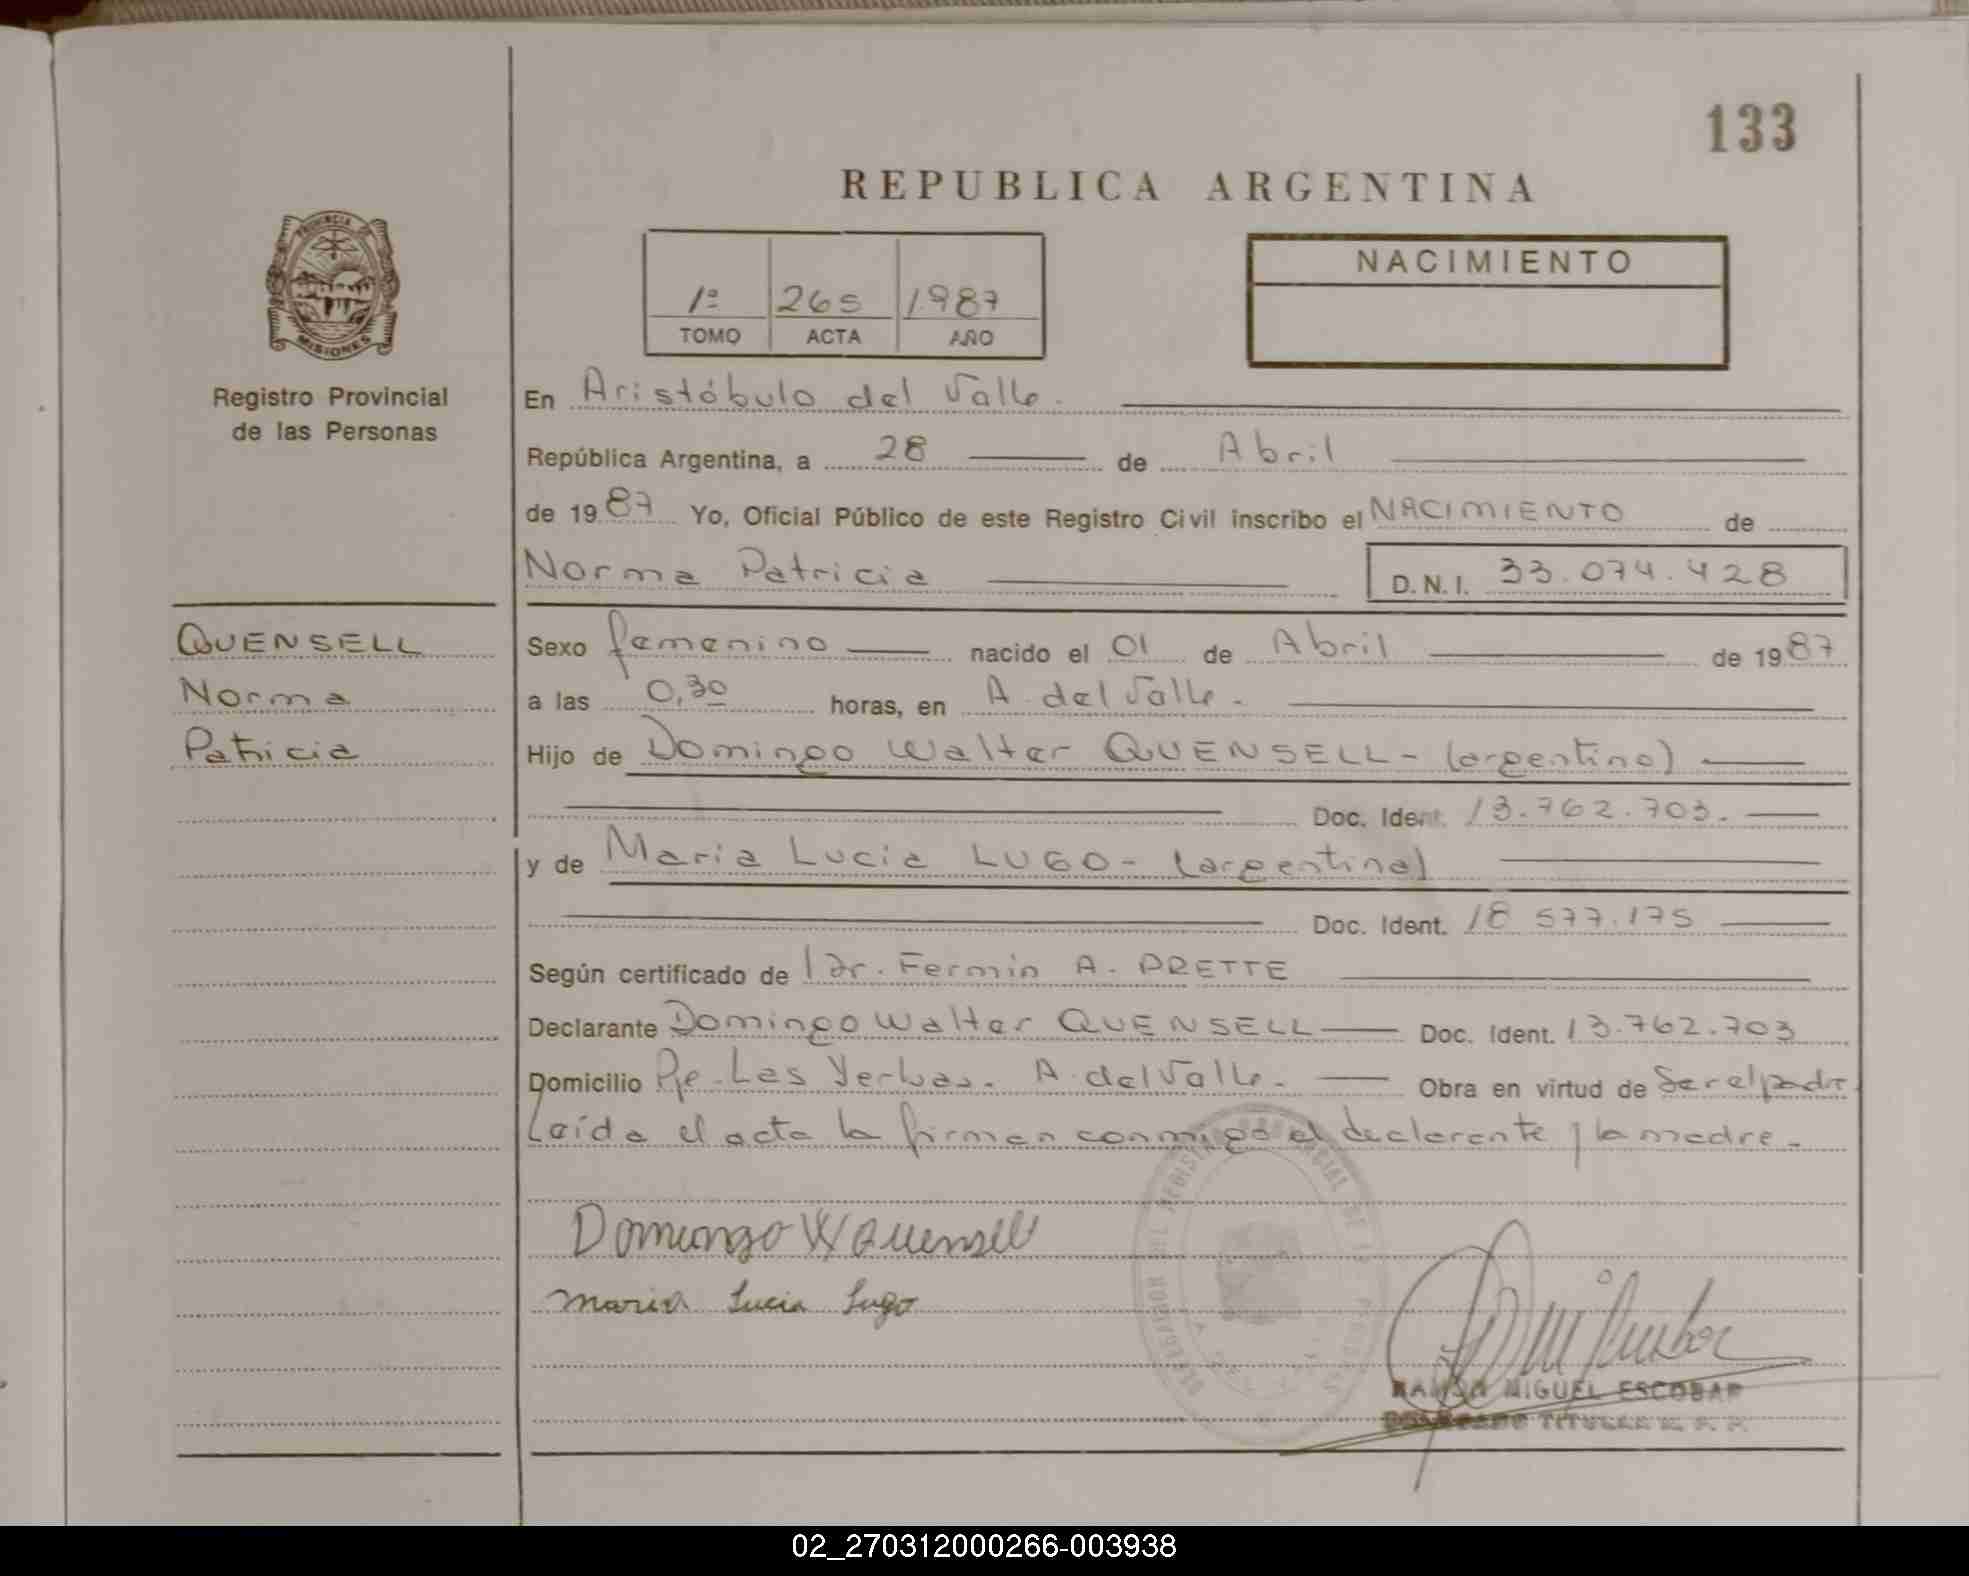 133
REPUBLICA ARGENTINA
PROVINCIA DE
MISIONES
Registro Provincial
de las Personas
1º 265 1.987
TOMO ACTA AÑO
NACIMIENTO
En Aristóbulo del Valle.
República Argentina, a 28 de Abril
de 1987 Yo, Oficial Público de este Registro Civil inscribo el NACIMIENTO de
Norma Patricia D.N.I. 33.074.428
QUENSELL
Norma
Patricia
Sexo femenino nacido el 01 de Abril de 1987
a las 0,30 horas, en A. del Valle.
Hijo de Domingo Walter QUENSELL- (argentino)
Doc. Ident. 13.762.703.
y de Maria Lucia LUGO- (argentina)
Doc. Ident. 18 577.175
Según certificado de Dr. Fermin A. PRETTE
Declarante Domingo Walter QUENSELL Doc. Ident. 13.762.703
Domicilio Pje. Las Yerbas. A. del Valle. Obra en virtud de Ser el padre
Leída el acta la firman conmigo el declarante y la madre.
Domingo W Quensell
Maria Lucia Lugo
RAMON MIGUEL ESCOBAR
DELEGADO TITULAR R. P. P.
02_270312000266-003938